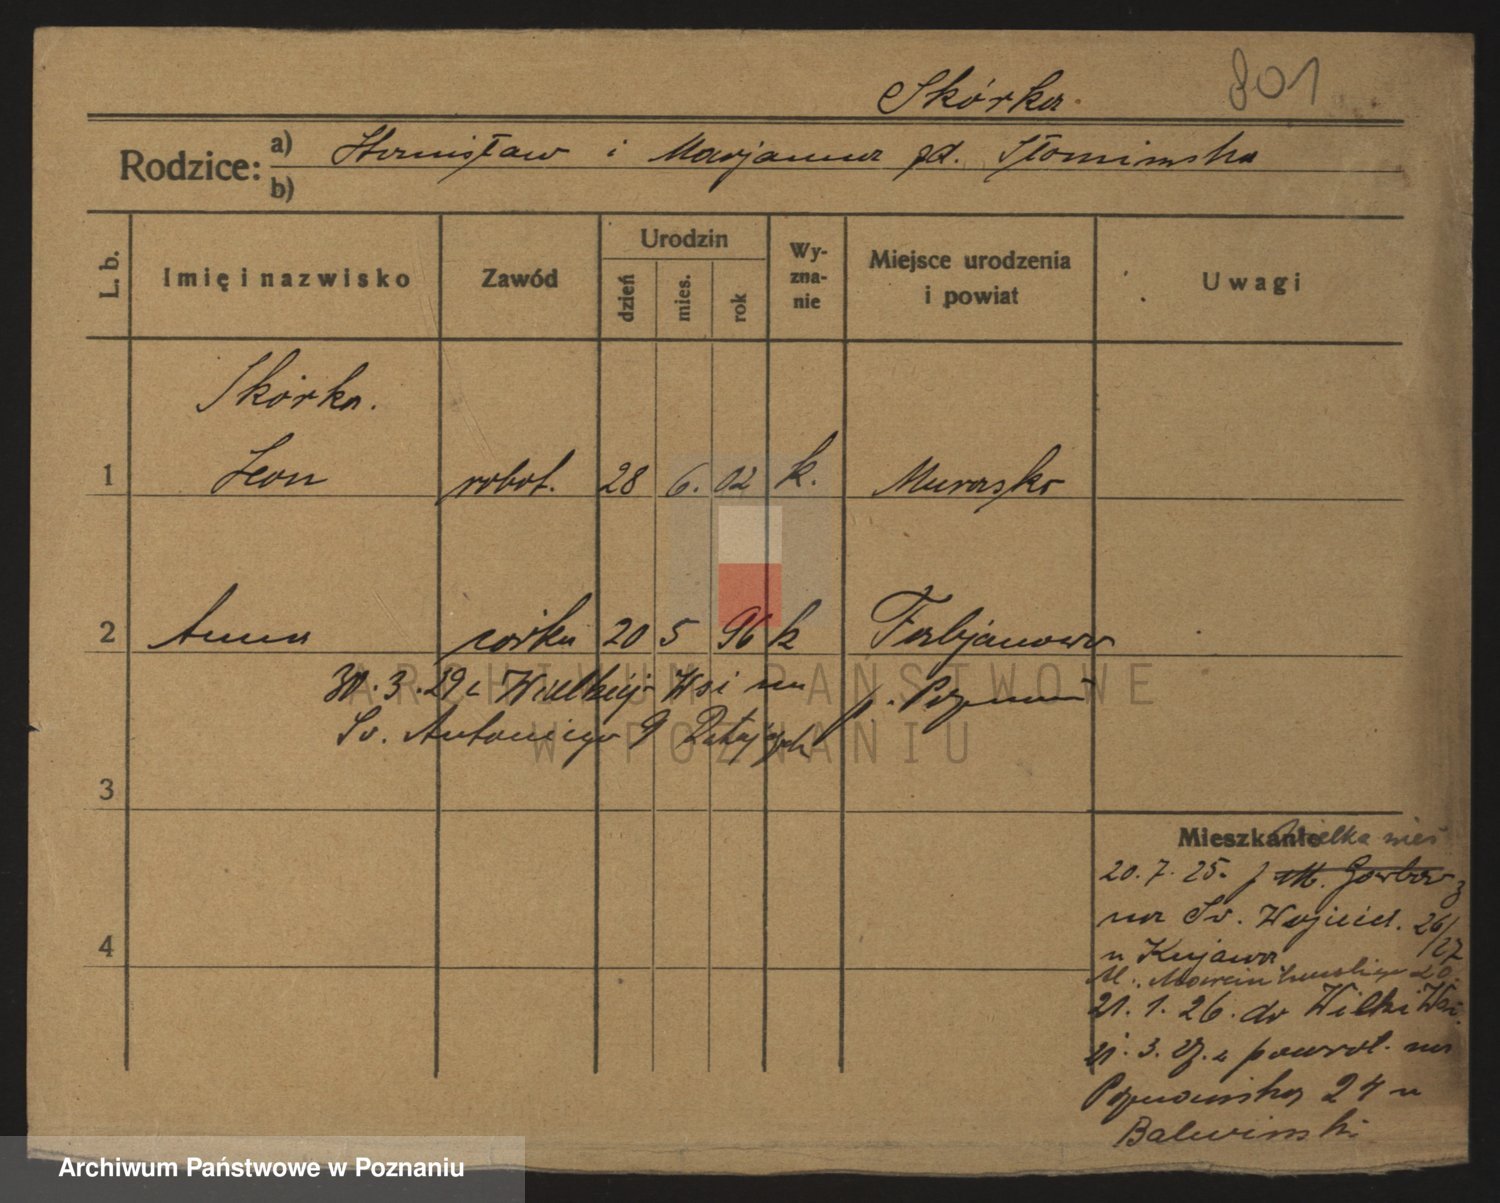 Skórka.
801
Rodzice:
a) Stanisław i Marjanna zd. Słomińska
b)
L. b.
Imię i nazwisko
Zawód
Urodzin
dzień
mies.
rok
Wy-
zna-
nie
Miejsce urodzenia
i powiat
Uwagi
Skórka.
1 Leon robot. 28 6. 02 k. Murasko
2 Anna córka 20 5 96 k Fabjanowo
30. 3. 29 z Wielkiej Wsi na p. Poznań
Św. Antoniego 9 Ratajczak
ARCHIWUM PAŃSTWOWE
W POZNANIU
3
4
Mieszkanie
Wielka wieś
20. 7. 25. z M. Garbary 3
na Św. Wojciech. 26/27
u Kujawa
M. Marcinkowskiego 20.
21. 1. 26. do Wielki Wsi.
21. 3. 27. z powrot. na
Poznańska 24 u
Balwiński
Archiwum Państwowe w Poznaniu